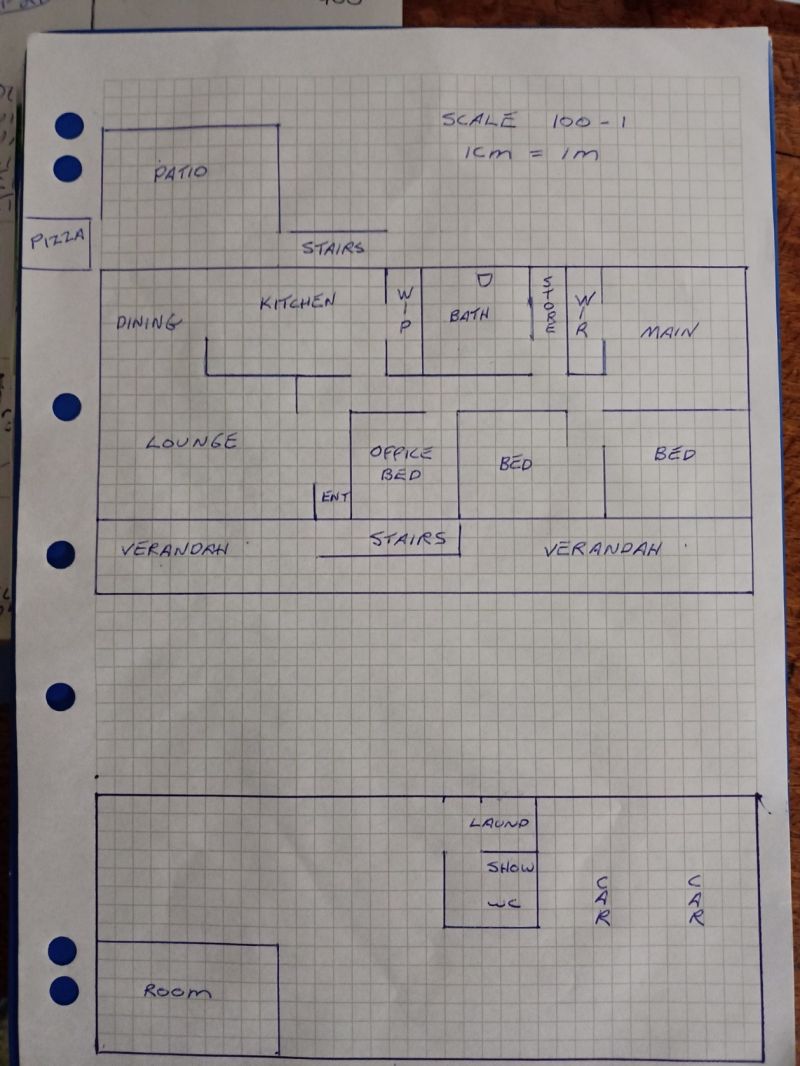 SCALE 100-1
1CM = 1M
PATIO
PIZZA
STAIRS
DINING
KITCHEN
WIP
BATH
STORE
WIR
MAIN
LOUNGE
OFFICE
BED
BED
BED
ENT
VERANDAH
STAIRS
VERANDAH
LAUND
SHOW
WC
CAR
CAR
ROOM